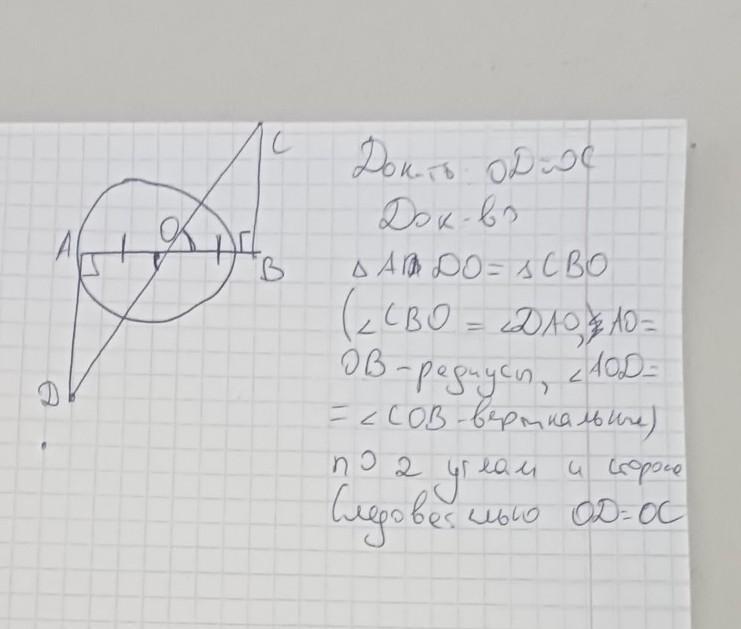 C
A
O
B
D
Док-ть: OD=OC
Док-во
△ADO=△CBO
(∠CBO=∠DAO, AO=
OB-радиусы, ∠AOD=
=∠COB-вертикальные)
по 2 углам и стороне
Следовательно OD=OC